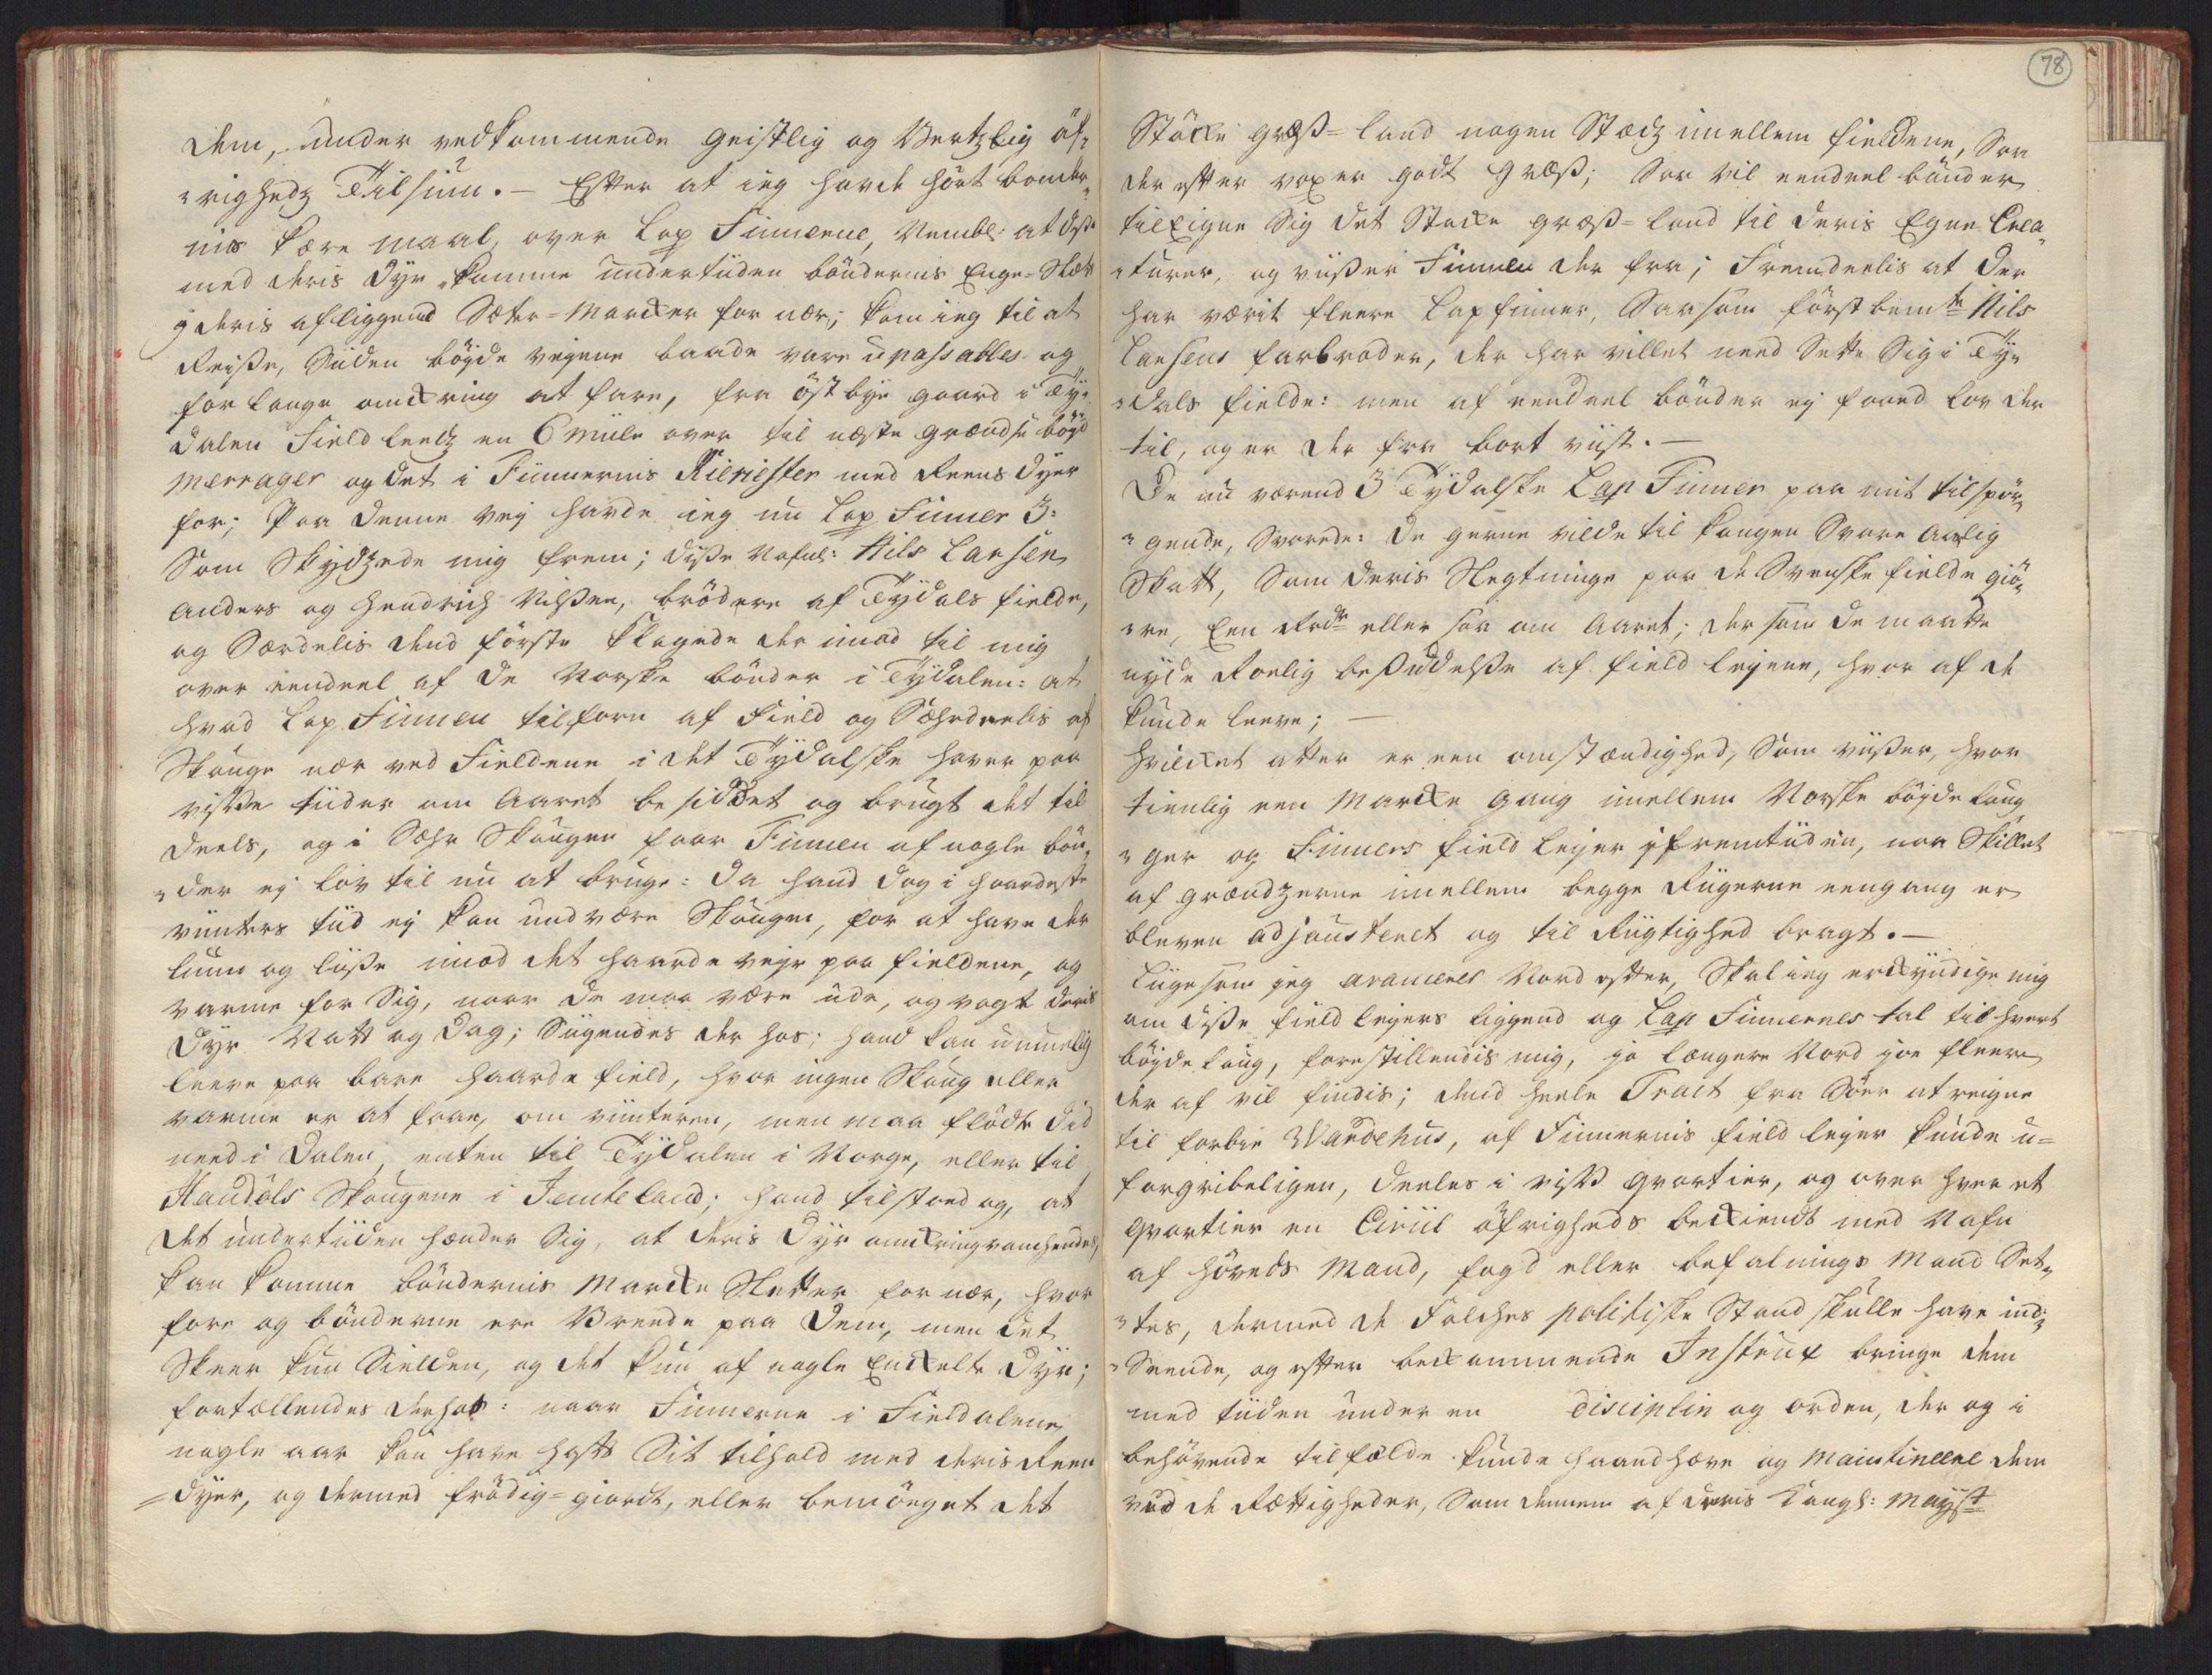 dem, under vedkommende geistlig og Vertzlig öf=
=righedz Tilsiun. — Efter at ieg havde hört bönder=
nis kære maal, over Lap Finnerne, Nembl: at dise
med deris dyr, komme undertüden böndernis Enge-Slet
i deris afliggend Sæter-Marcker for nær; kom ieg til at
Reise, Siiden böyde vejene baade vare upassables og
for lange omckring at fare, fra östbye gaard i Ty=
dalen Field leedz en 6 miile over til næste grændse böyd
Merrager og det i Finnernis Kierisser med Reensdyer
for; Paa denne vej havde ieg nu Lap Finner 3:
Som Skydzede mig frem; disse Nafnl: Nils Larsen
Anders og Hendrich Nilssen, brödere af Tydals fielde,
og Særdelis dend förste klagede der imod til mig
over eendeel af de Norske bönder i Tydalen: at
hvad Lap Finnen tilforn af Field og Sæhrdeelis af
Skouge nær ved Fieldene i det Tydalske haver paa
visse tiider om Aaret besiddet og brugt det til
deels, og i Sæhr Skougen faar Finnen af nogle bön=
=der ej lov til nu at bruge: da hand dog i haardeste
vinters tiid ej kan undvære Skougen, for at have der
luun og liise imod det haarde vejr paa fieldene, og
varme for Sig, naar de maa være ude, og vogte deris
dyr Natt og Dag; Siigendes der hos; hand kan umuelig
leeve paa bare haarde field, hvor ingen Skoug eller
varme er at faae, om vinteren, men maa flödte did
need i Dalen, enten til Tydalen i Norge, eller til
Handöls Skougene i Jemteland; hand tilstoed og, at
det undertiiden hænder Sig, at deris Dyr omckringvanckendes,
kan komme böndernis Marcke Sletter for nær, hvor
fore og bönderne ere Vreede paa Dem, men det
Skeer kun Sielden, og det kun af nogle Enckelte Dyr;
fortællendes derhos: naar Finnerne i Fieldalene
nogle aar kan have haft Sit tilhold med deris Reen
=dyer, og dermed frödig-giordt, eller bemönget det
78
Stöcke græss=land nogen Stædz imellem fieldene, Saa
der efter voxer godt græss; Saa vil eendeel bönder
tilEigne Sig det Støcke græss-land til deris Egne Crea=
=turer, og viiser Finnen der fra; Fremdeelis at der
har værit fleere Lapfinner, Saasom först bemte Nils
Larsens farbroder, der har villet need Sette Sig i Ty=
=dals fielde: men af eendeel bönder ej faaed lov der
til, og er der fra bort viist. —
De nu værend 3 Tydalske Lap Finner paa mit tilspör=
=gende, Svarede: De gerne vilde til kongen Svare Aarlig
Skatt, Som deris Slegtninge paa de Svenske fielde giö=
=re, Een Rdr eller saa om Aaret; der som de maatte
nyde Roelig besiddelse af field lejene, hvor af de
kunde leeve; —
hvilcket atter er een omstændighed, Som viiser, hvor
tienlig een Marcke gang imellem Norske böyde laug
=ger og Finners field lejer i fremtiiden, naar Skillet
af grændzerne imellem begge Riigerne eengang er
bleven adjousteret og til Riigtighed bragt. —
Liigesom jeg avancerer Nord efter, Skal ieg erckyndige mig
om disse field lejers liggend og Lap Finnernes tal til hvert
böyde laug, forestillendis mig, jo længere Nord joe fleere
der af vil findis; dend heele Tract fra Söer at reigne
til forbie Wardehuus, af Finnernis field lejer kunde u=
forgribeligen, deeles i visse qvarteer, og over hver et
qvarteer en Civiil öfrigheds beckiendt med Nafn
af höveds Mand, fogd eller befalnings Mand Set=
=tes, dermed de folckes politiske Stand skulle have ind=
=Seende, og efter beckommende Instrux bringe dem
med tiiden under en disciplin og orden, der og i
behövende tilfælde kunde haandhæve og maintineere dem
ved de Rettigheder, Som dennem af deris Kongl: Mayst